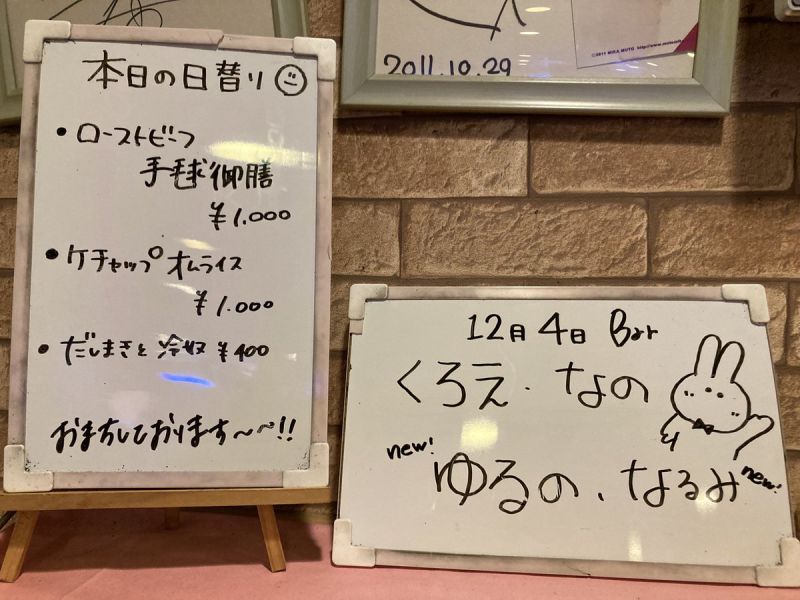 本日の日替り
・ローストビーフ
手毬御膳
¥1.000
・ケチャップオムライス
¥1.000
・だしまきと冷奴 ¥400
おまちしております〜〜!!
2011.10.29
©2011 MIKA MUTO
12月4日 Bar
くろえ・なの
new!
ゆるの、なるみ
new!